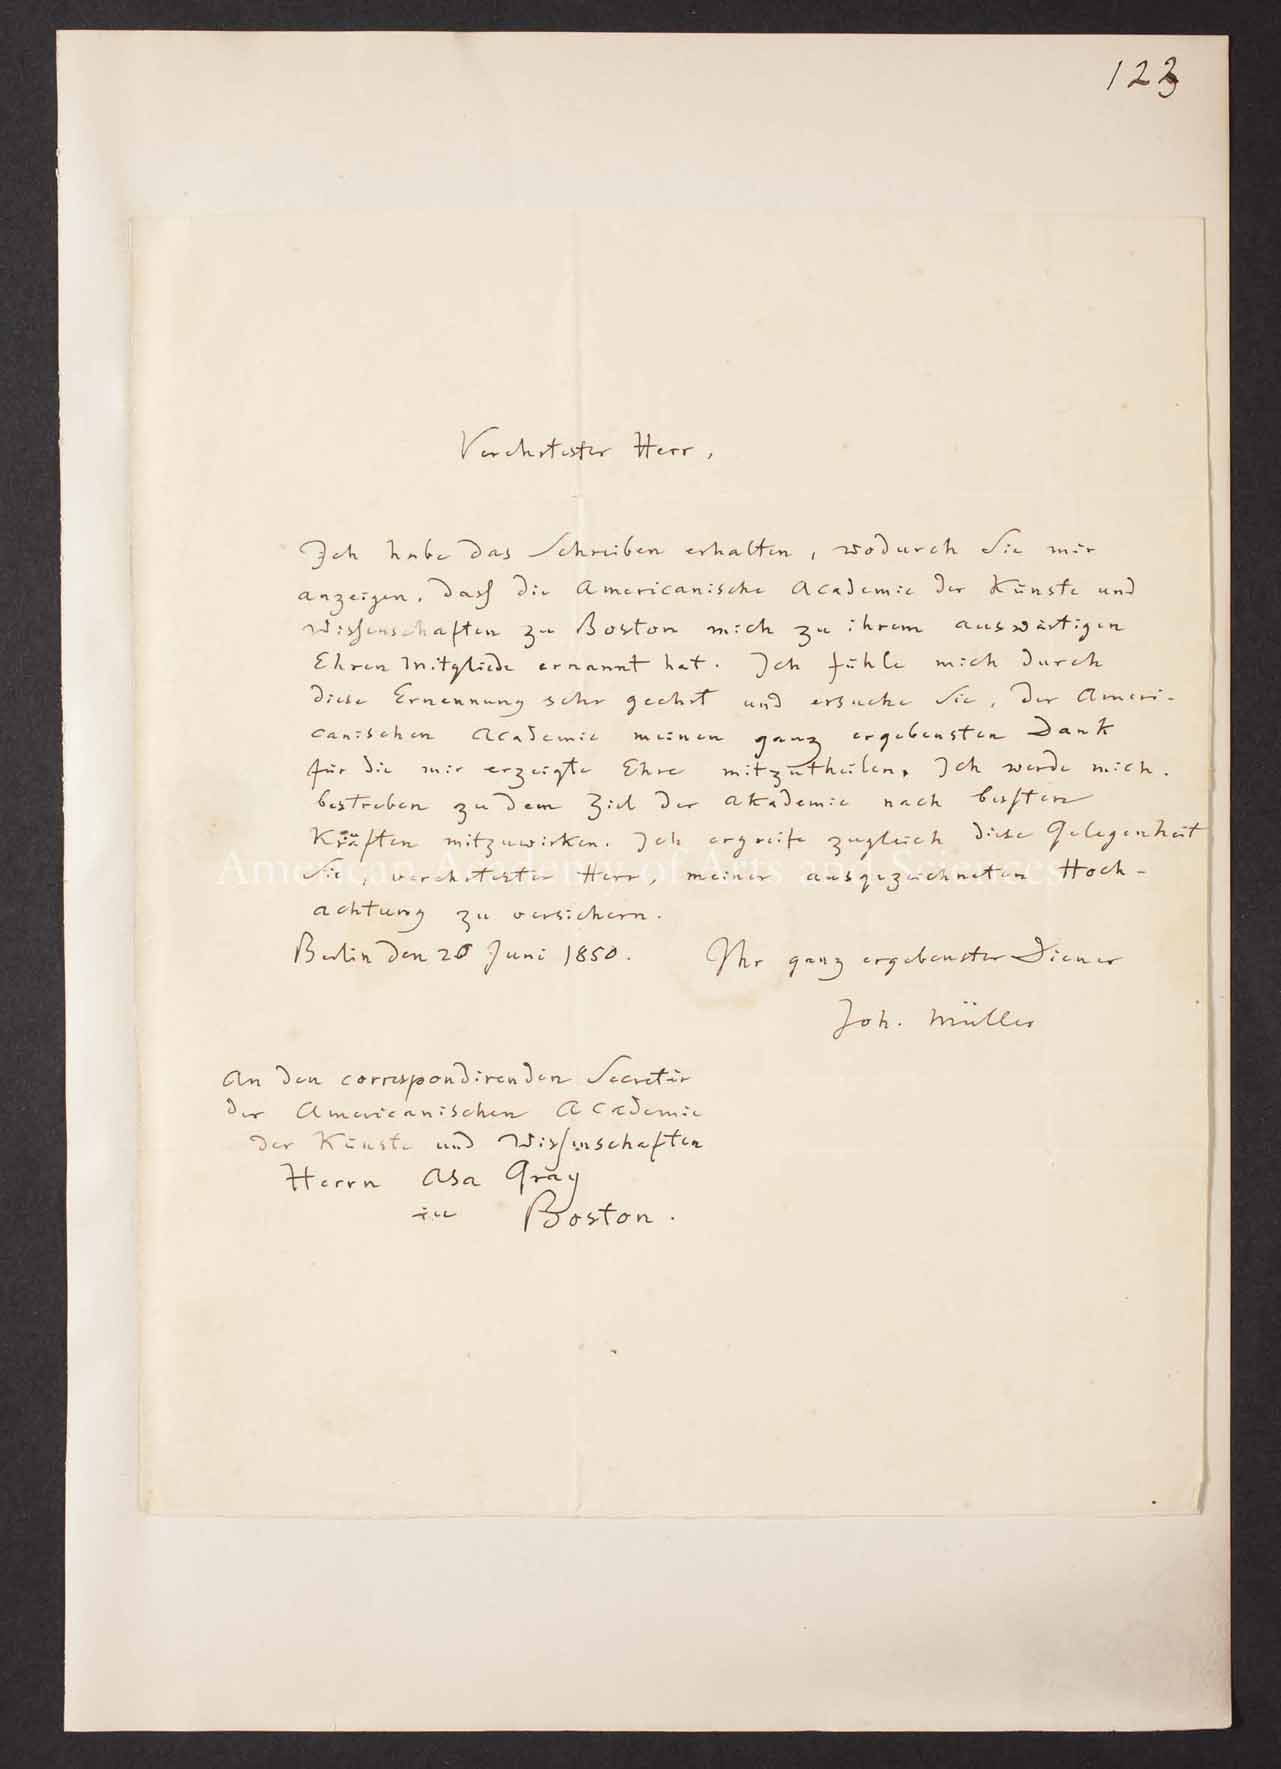 123
Verehrtester Herr,
Ich habe das Schreiben erhalten, wodurch Sie mir
anzeigen, daß die Americanische Academie der Künste und
Wissenschaften zu Boston mich zu ihrem auswärtigen
Ehren Mitgliede ernannt hat. Ich fühle mich durch
diese Ernennung sehr geehrt und ersuche Sie, der Ameri-
canischen Academie meinen ganz ergebensten Dank
für die mir erzeigte Ehre mitzutheilen. Ich werde mich
bestreben zu dem Ziel der Akademie nach besten
Kräften mitzuwirken. Ich ergreife zugleich diese Gelegenheit
Sie, verehrtester Herr, meiner ausgezeichneten Hoch-
achtung zu versichern.
Berlin den 26 Juni 1850. Ihr ganz ergebenster Diener
Joh. Müller
An den correspondirenden Secretär
der Americanischen Academie
der Künste und Wissenschaften
Herrn Asa Gray
in Boston.
American Academy of Arts and Sciences